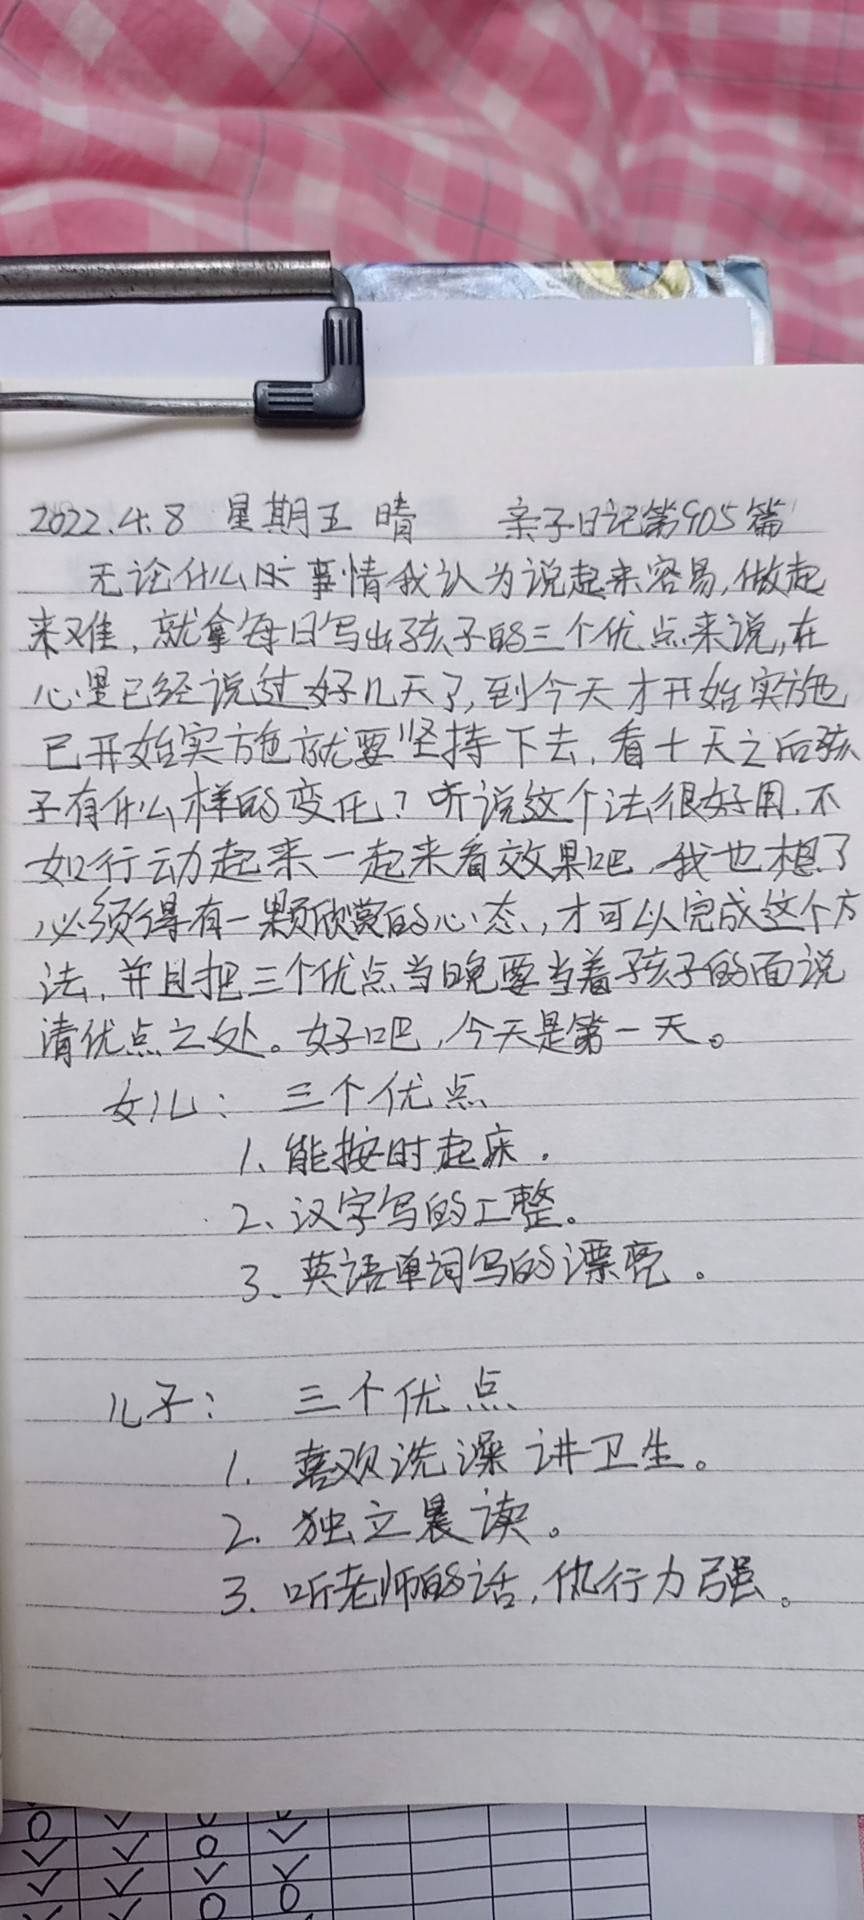 2022.4.8 星期五 晴 亲子日记第905篇
无论什么事情我认为说起来容易,做起
来难,就拿每日写出孩子的三个优点来说,在
心里已经说过好几天了,到今天才开始实施
已开始实施就要坚持下去,看十天之后孩
子有什么样的变化?听说这个法很好用,不
如行动起来一起来看效果吧,我也想了
必须得有一颗欣赏的心态,才可以完成这个方
法,并且把三个优点当晚要当着孩子的面说
清优点之处。好吧,今天是第一天。
女儿: 三个优点
1、能按时起床.
2、汉字写的工整。
3、英语单词写的漂亮。
儿子: 三个优点
1. 喜欢洗澡讲卫生。
2. 独立晨读。
3. 听老师的话,执行力强。